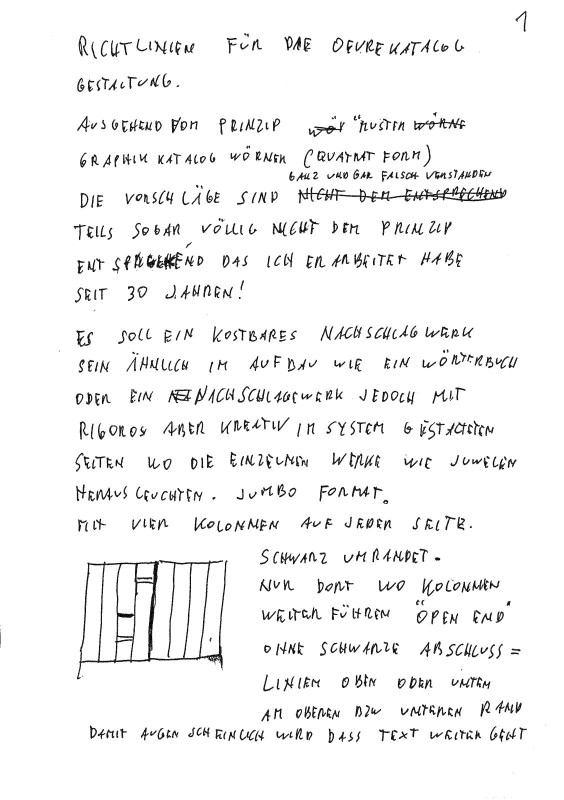 1
RICHTLINIEN FÜR DAE OEVREKATALOG
GESTALTUNG.
AUSGEHEND VOM PRINZIP WÖR "MUSTER WÖRNE
GRAPHIK KATALOG WÖRNER (QUATRAT FORM)
GANZ UND GAR FALSCH VERSTANDEN
DIE VORSCHLÄGE SIND NICHT DEM ENTSPRECHEND
TEILS SOGAR VÖLLIG NICHT DEM PRINZIP
ENTSPRECHEND DAS ICH ERARBEITET HABE
SEIT 30 JAHREN!
ES SOLL EIN KOSTBARES NACHSCHLAGWERK
SEIN ÄHNLICH IM AUFBAU WIE EIN WÖRTERBUCH
ODER EIN NACHSCHLAGEWERK JEDOCH MIT
RIGOROS ABER KREATIV IM SYSTEM GESTALTETEN
SEITEN WO DIE EINZELNEN WERKE WIE JUWELEN
HERAUSLEUCHTEN. JUMBO FORMAT.
MIT VIER KOLONNEN AUF JEDER SEITE.
SCHWARZ UMRANDET.
NUR DORT WO KOLONNEN
WEITER FÜHREN "OPEN END"
OHNE SCHWARZE ABSCHLUSS=
LINIEN OBEN ODER UNTEN
AM OBEREN BZW UNTEREN RAND
DAMIT AUGENSCHEINLICH WIRD DASS TEXT WEITER GEHT